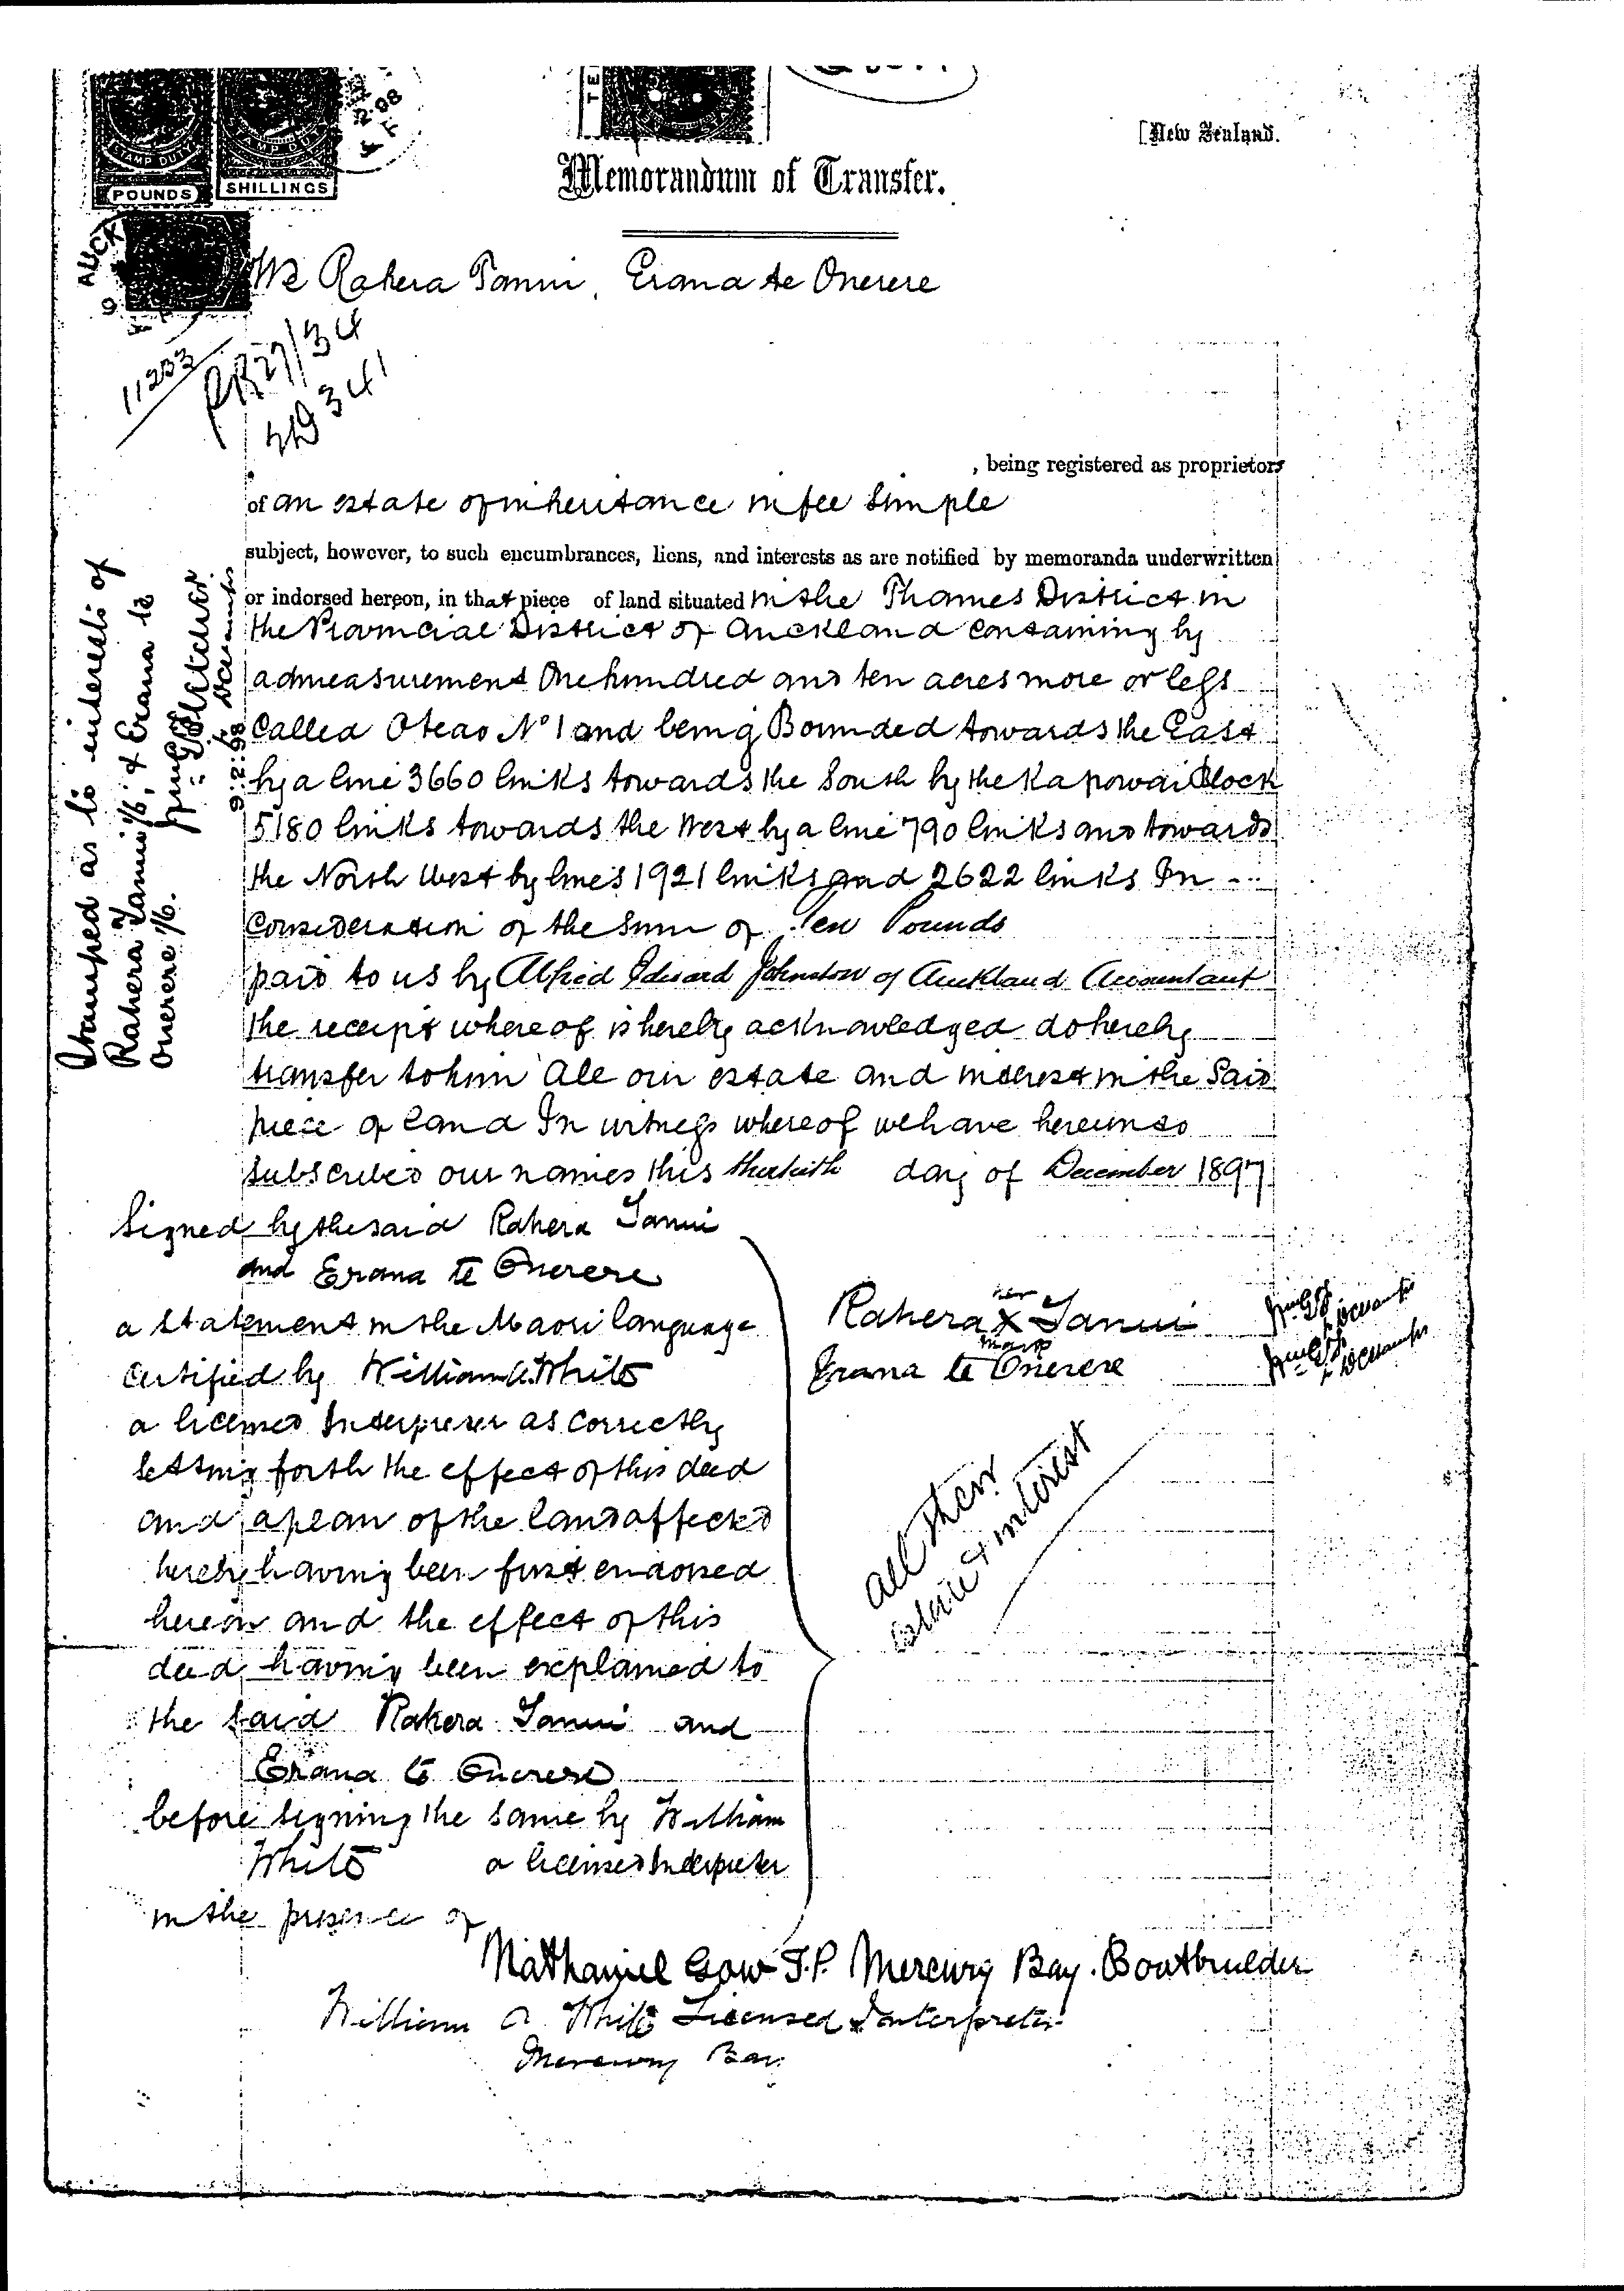 STAMP DUTY
POUNDS
SHILLINGS
2.98
AUCK
[New Zealand.
Memorandum of Transfer.
We Rahera Tanui, Erana te Onerere
11233
341
, being registered as proprietors
of an estate of inheritance in fee simple
subject, however, to such encumbrances, liens, and interests as are notified by memoranda underwritten
or indorsed hereon, in that piece of land situated in the Thames District in
the Provincial District of Auckland containing by
admeasurement One hundred and ten acres more or less
called Oteao No 1 and being Bounded towards the East
by a line 3660 links towards the South by the Kapowai Block
5180 links towards the West by a line 790 links and towards
the North West by lines 1921 links and 2622 links In
consideration of the sum of Ten Pounds
paid to us by Alfred Edward Johnston of Auckland Accountant
the receipt whereof is hereby acknowledged do hereby
transfer to him all our estate and interest in the said
piece of land In witness whereof we have hereunto
subscribed our names this thirtieth day of December 1897
Stamped as to interests of
Rahera Tanui 1/6, & Erana te
Onerere 1/6.
9:2:98
Signed by the said Rahera Tanui
and Erana te Onerere
a statement in the Maori language
certified by William A. White
a licensed Interpreter as correctly
setting forth the effect of this deed
and a plan of the land affected
hereby having been first endorsed
hereon and the effect of this
deed having been explained to
the said Rahera Tanui and
Erana te Onerere
before signing the same by William
White a licensed Interpreter
in the presence of
her
Rahera X Tanui
mark
Erana te Onerere
all their
estate & interest
Nathaniel Gow J.P. Mercury Bay. Boatbuilder
William A. White Licensed Interpreter
Mercury Bay